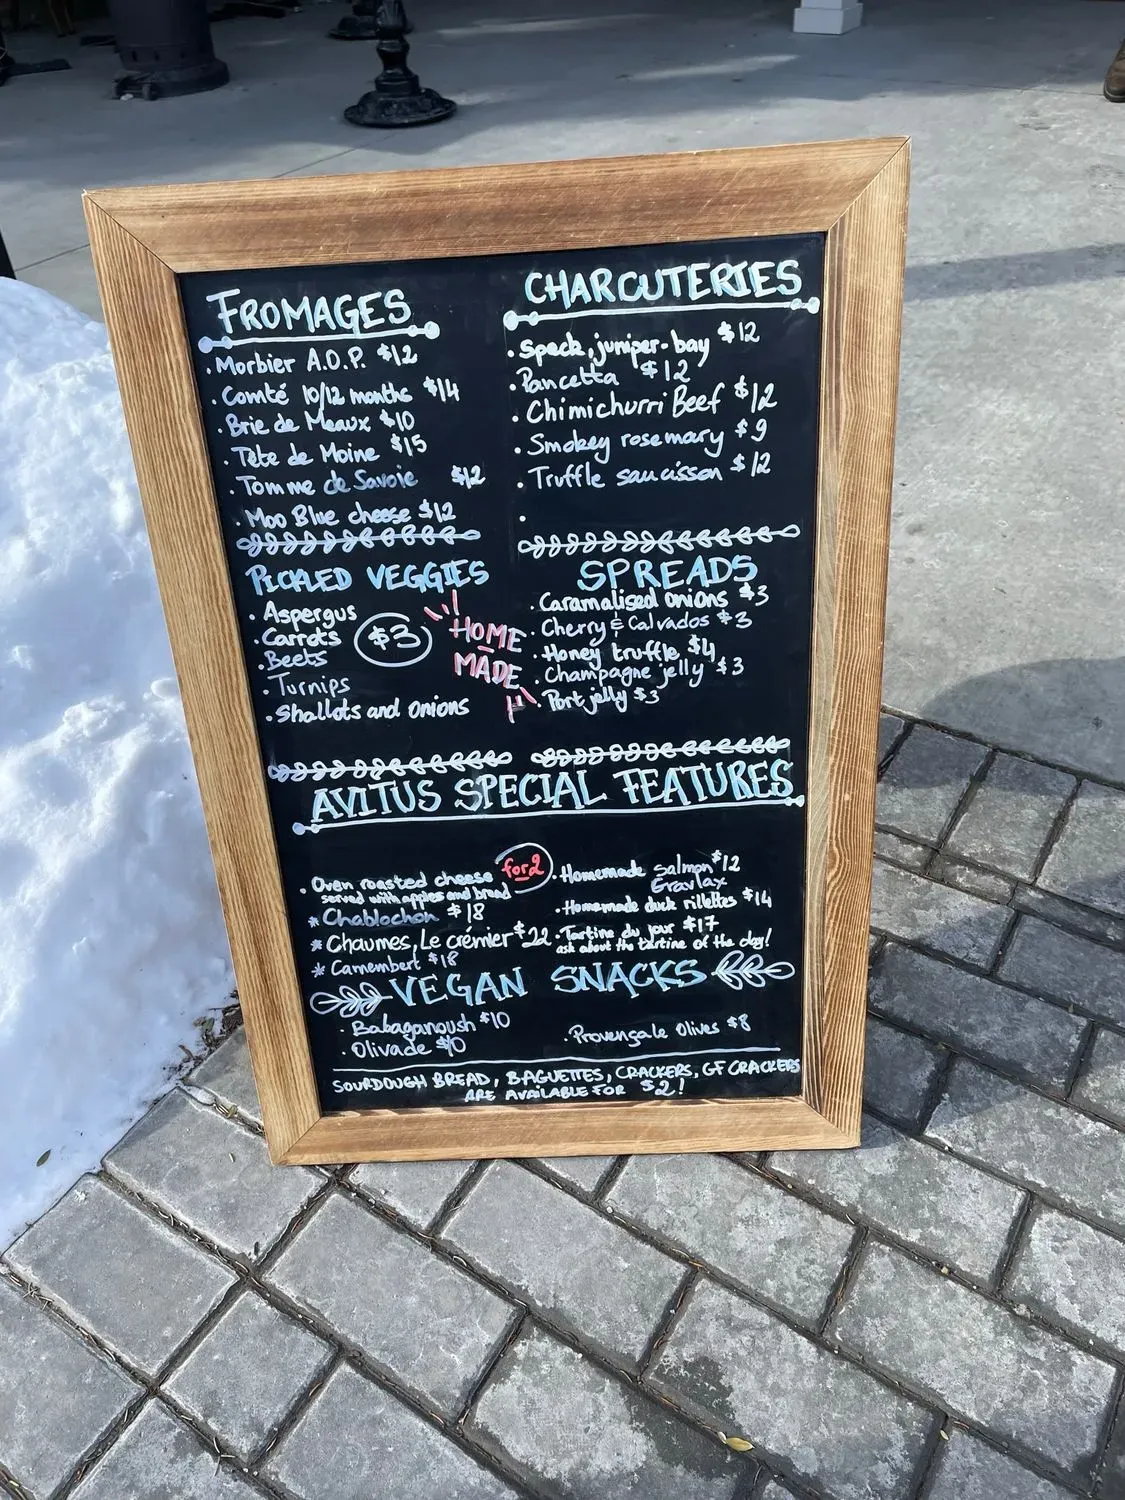 FROMAGES
· Morbier A.O.P. $12
· Comté 10/12 months $14
· Brie de Meaux $10
· Tête de Moine $15
· Tomme de Savoie $12
· Moo Blue cheese $12
CHARCUTERIES
· Speck, juniper-bay $12
· Pancetta $12
· Chimichurri Beef $12
· Smokey rosemary $9
· Truffle saucisson $12
·
PICKLED VEGGIES
· Aspergus
· Carrots
· Beets
· Turnips
· Shallots and onions
$3
HOME
MADE
SPREADS
· Caramalised onions $3
· Cherry & Calvados $3
· Honey truffle $4
· Champagne jelly $3
· Port jelly $3
AVITUS SPECIAL FEATURES
· Oven roasted cheese for 2
served with apples and bread
* Chablochon $18
* Chaumes, Le crémier $22
* Camembert $18
· Homemade salmon $12
Gravlax
· Homemade duck rillettes $14
· Tartine du jour $17
ask about the tartine of the day!
VEGAN SNACKS
· Babaganoush $10
· Olivade $10
· Provençale Olives $8
SOURDOUGH BREAD, BAGUETTES, CRACKERS, GF CRACKERS
ARE AVAILABLE FOR $2!